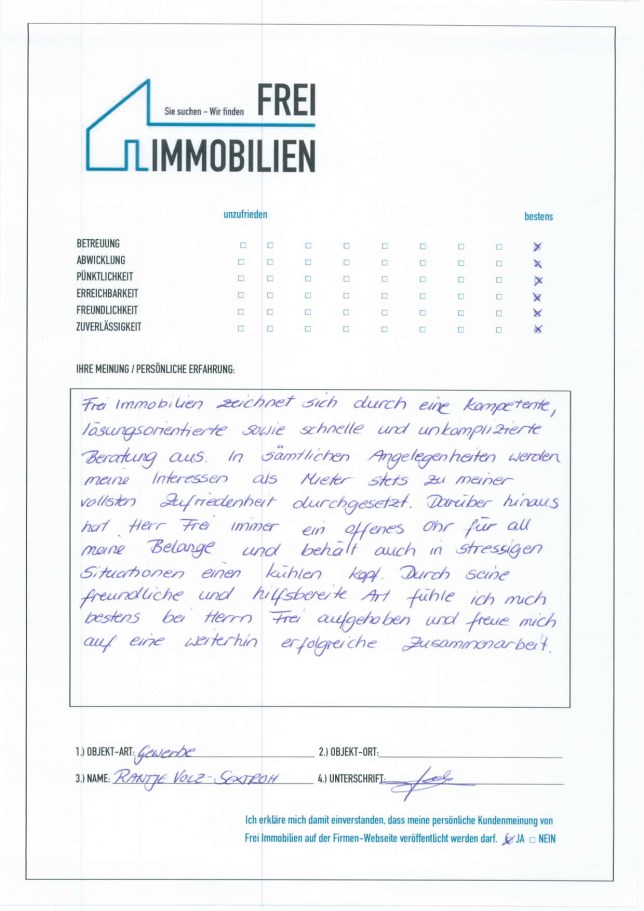 Sie suchen – Wir finden FREI
IMMOBILIEN
unzufrieden bestens
BETREUUNG
ABWICKLUNG
PÜNKTLICHKEIT
ERREICHBARKEIT
FREUNDLICHKEIT
ZUVERLÄSSIGKEIT
IHRE MEINUNG / PERSÖNLICHE ERFAHRUNG:
Frei Immobilien zeichnet sich durch eine kompetente,
lösungsorientierte sowie schnelle und unkomplizierte
Beratung aus. In sämtlichen Angelegenheiten werden
meine Interessen als Mieter stets zu meiner
vollsten Zufriedenheit durchgesetzt. Darüber hinaus
hat Herr Frei immer ein offenes Ohr für all
meine Belange und behält auch in stressigen
Situationen einen kühlen Kopf. Durch seine
freundliche und hilfsbereite Art fühle ich mich
bestens bei Herrn Frei aufgehoben und freue mich
auf eine weiterhin erfolgreiche Zusammenarbeit.
1.) OBJEKT-ART: Gewerbe 2.) OBJEKT-ORT:
3.) NAME: RANTJE VOLZ-SEXTROH 4.) UNTERSCHRIFT:
Ich erkläre mich damit einverstanden, dass meine persönliche Kundenmeinung von
Frei Immobilien auf der Firmen-Webseite veröffentlicht werden darf. JA NEIN